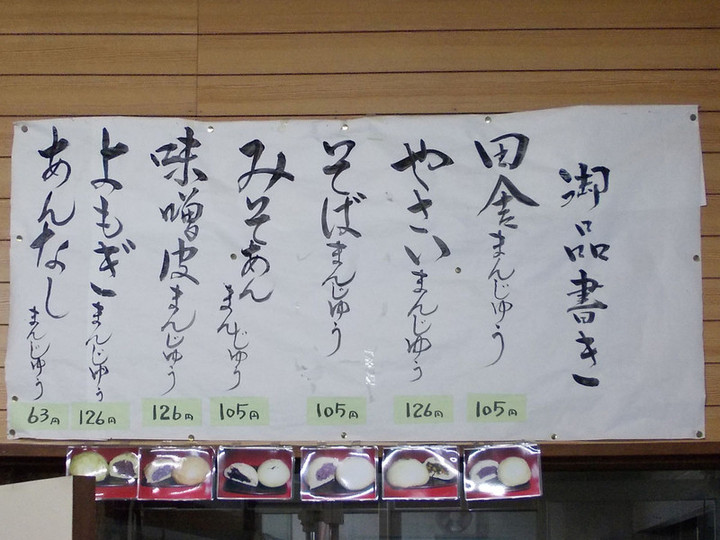 御品書き
田舎まんじゅう
105円
やさいまんじゅう
126円
そばまんじゅう
105円
みそあんまんじゅう
105円
味噌皮まんじゅう
126円
よもぎまんじゅう
126円
あんなしまんじゅう
63円